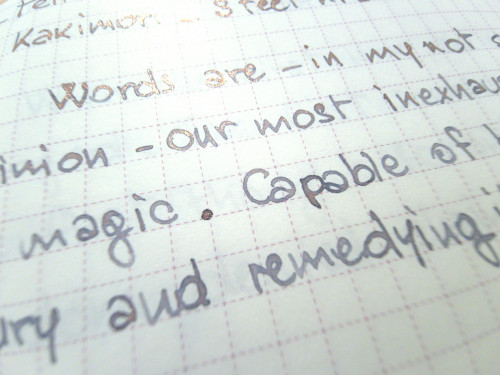 Kakimori steel
Words are - in my not s
inion - our most inexhaus
magic. Capable of
ury and remedying